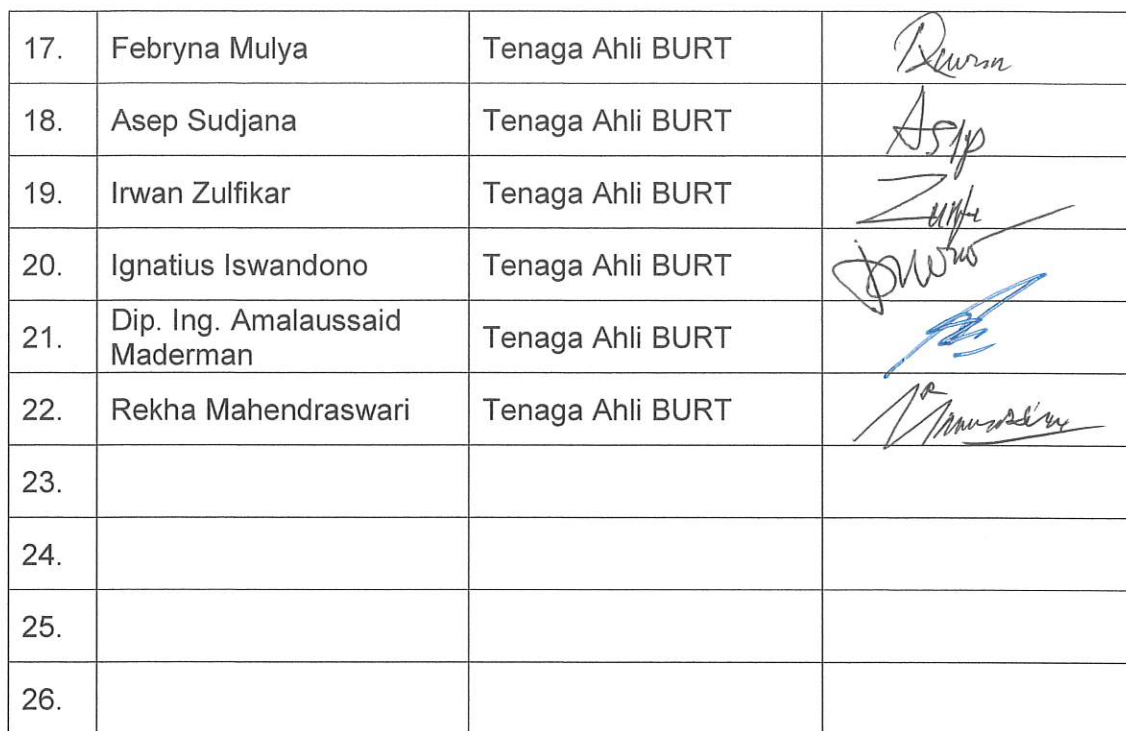 17. Febryna Mulya Tenaga Ahli BURT
18. Asep Sudjana Tenaga Ahli BURT
19. Irwan Zulfikar Tenaga Ahli BURT
20. Ignatius Iswandono Tenaga Ahli BURT
21. Dip. Ing. Amalaussaid
Maderman Tenaga Ahli BURT
22. Rekha Mahendraswari Tenaga Ahli BURT
23.
24.
25.
26.